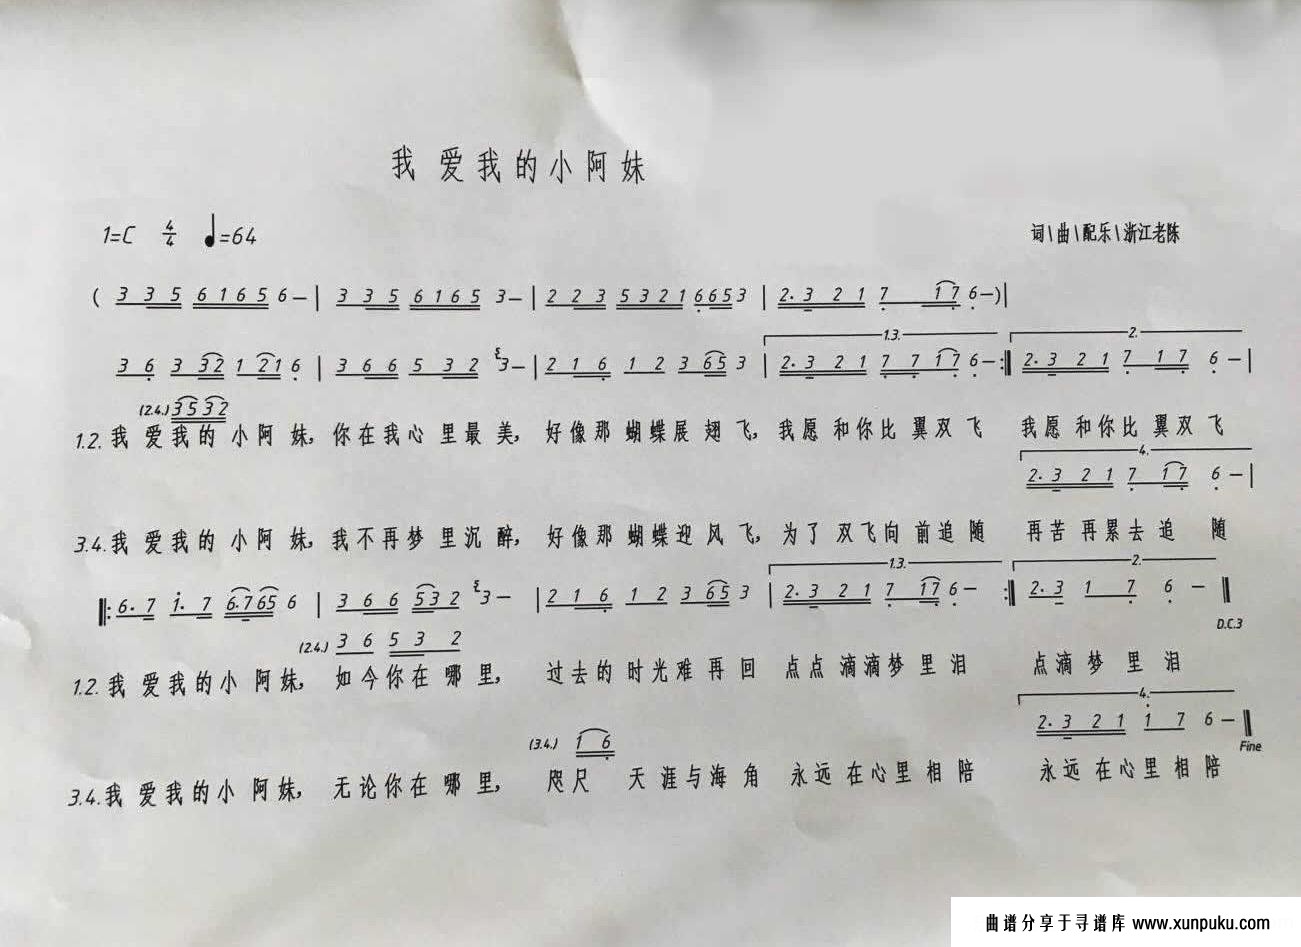 我爱我的小阿妹
1=C 4/4 ♩=64 词\曲\配乐\浙江老陈
( 3 3 5 6 1 6 5 6 – | 3 3 5 6 1 6 5 3 – | 2 2 3 5 3 2 1 6 6 5 3 | 2. 3 2 1 7 1 7 6 – ) |
1.3. 2.
3 6 3 3 2 1 2 1 6 | 3 6 6 5 3 2 3 – | 2 1 6 1 2 3 6 5 3 | 2. 3 2 1 7 7 1 7 6 – :‖ 2. 3 2 1 7 1 7 6 – |
(2.4.) 3 5 3 2
1.2. 我爱我的小阿妹, 你在我心里最美, 好像那蝴蝶展翅飞, 我愿和你比翼双飞 我愿和你比翼双飞
4.
2. 3 2 1 7 1 7 6 – |
3.4. 我爱我的小阿妹, 我不再梦里沉醉, 好像那蝴蝶迎风飞, 为了双飞向前追随 再苦再累去追随
1.3. 2.
‖: 6. 7 1. 7 6. 7 6 5 6 | 3 6 6 5 3 2 3 – | 2 1 6 1 2 3 6 5 3 | 2. 3 2 1 7 1 7 6 – :‖ 2. 3 1 7 6 – ‖
D.C.3
(2.4.) 3 6 5 3 2
1.2. 我爱我的小阿妹, 如今你在哪里, 过去的时光难再回 点点滴滴梦里泪 点滴梦里泪
4.
2. 3 2 1 1 7 6 – ‖
Fine
(3.4.) 1 6
3.4. 我爱我的小阿妹, 无论你在哪里, 咫尺天涯与海角 永远在心里相陪 永远在心里相陪
曲谱分享于寻谱库 www.xunpuku.com